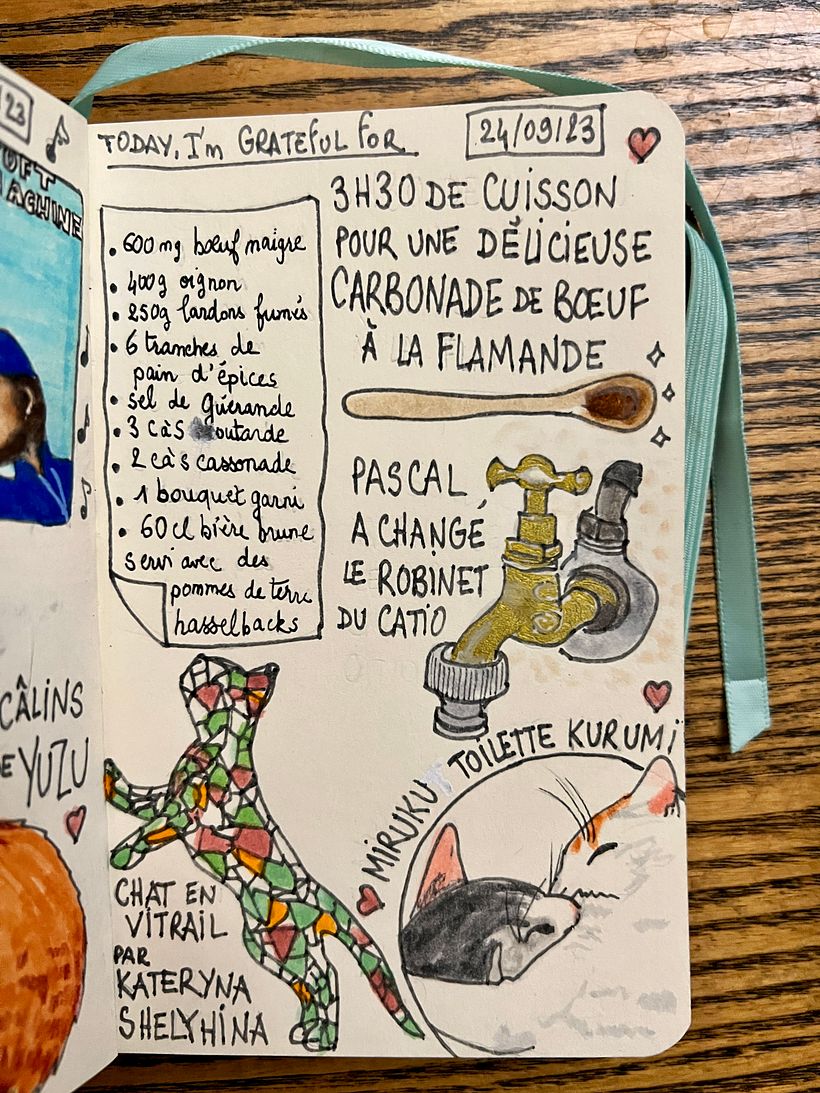 23
OFT
MACHINE
CÂLINS
E YUZU
TODAY, I'm GRATEFUL FOR
24/09/23
600mg bœuf maigre
400g oignon
250g lardons fumés
6 tranches de
pain d'épices
sel de Guérande
3 càs moutarde
2 càs cassonade
1 bouquet garni
60cl bière brune
servi avec des
pommes de terre
hasselbacks
3H30 DE CUISSON
POUR UNE DÉLICIEUSE
CARBONADE DE BŒUF
À LA FLAMANDE
PASCAL
A CHANGÉ
LE ROBINET
DU CATIO
CHAT EN
VITRAIL
PAR
KATERYNA
SHELYHINA
MIRUKU TOILETTE KURUMI